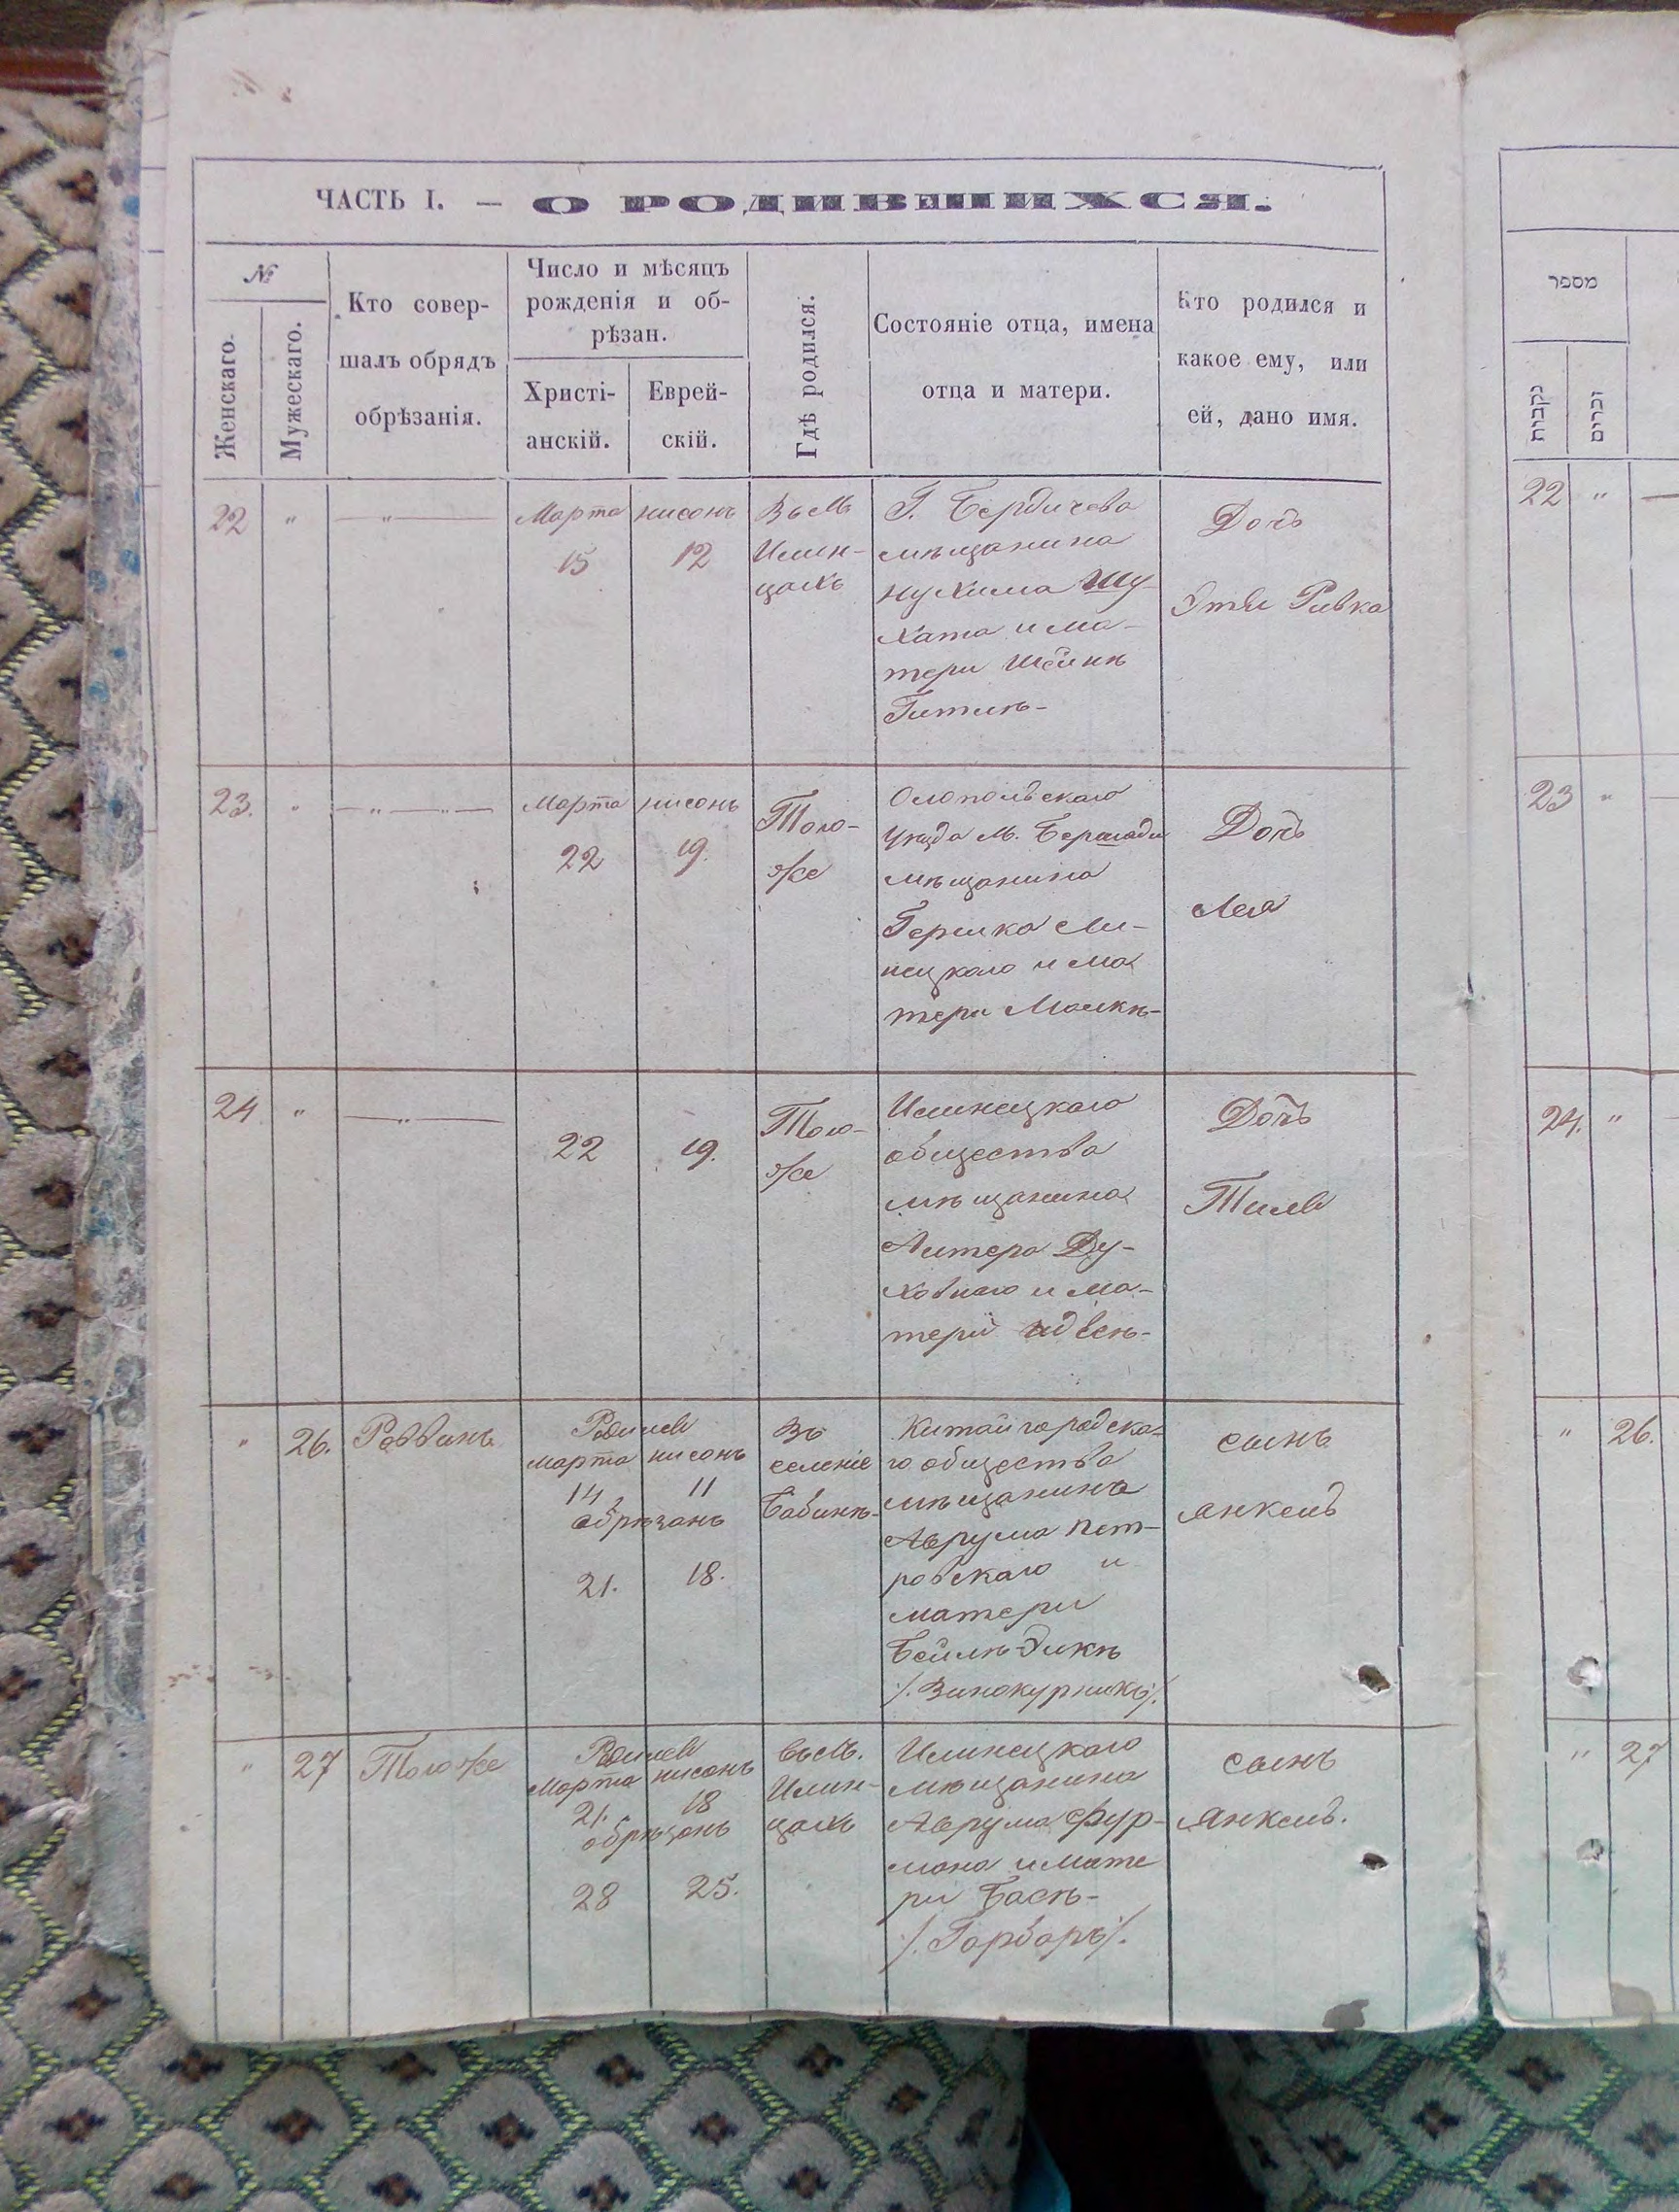 ЧАСТЬ I. — О РОДИВШИХСЯ.
№
Женскаго.
Мужескаго.
Кто совер-
шалъ обрядъ
обрѣзанія.
Число и мѣсяцъ
рожденія и об-
рѣзан.
Христі-
анскій.
Еврей-
скій.
Гдѣ родился.
Состояніе отца, имена
отца и матери.
Кто родился и
какое ему, или
ей, дано имя.
22
"
— " —
Марта
15
нисонъ
12
Въ м.
Илин-
цахъ
Г. Бердичева
мѣщанина
Нухима Шу-
хата и ма-
тери Шейнѣ
Гитлѣ-
Дочь
Этля Ривка
23.
"
— " — " —
Марта
22
нисонъ
19.
Того-
же
Ольгопольскаго
уѣзда м.
мѣщанина
Гершка Ли-
нецкаго и ма
тери Малкѣ-
Дочь
Лея
24
"
— " —
22
19.
Того-
же
Илинецкаго
общества
мѣщанина
Алтера Ду-
ховнаго и ма-
тери
Дочь
"
26.
Раввинъ
Родился
марта нисонъ
14 11
обрѣзанъ
21. 18.
Въ
селеніе
Бабинѣ-
Китайгородска-
го общества
мѣщанина
Аврума Пет-
ровскаго и
матери
Бейлѣ-Эикѣ
/. Винокурникъ ./
сынъ
Янкель
"
27
Тогоже
Родился
Марта нисонъ
21. 18
обрѣзанъ
28 25.
въ м.
Илин-
цахъ
Илинецкаго
мѣщанина
Аврума Фур-
мана и мате
ри Басѣ-
/. Гарбаръ ./
сынъ
Янкель.
מספר
נקבות
זכרים
22 "
23 "
24. "
" 26.
" 27